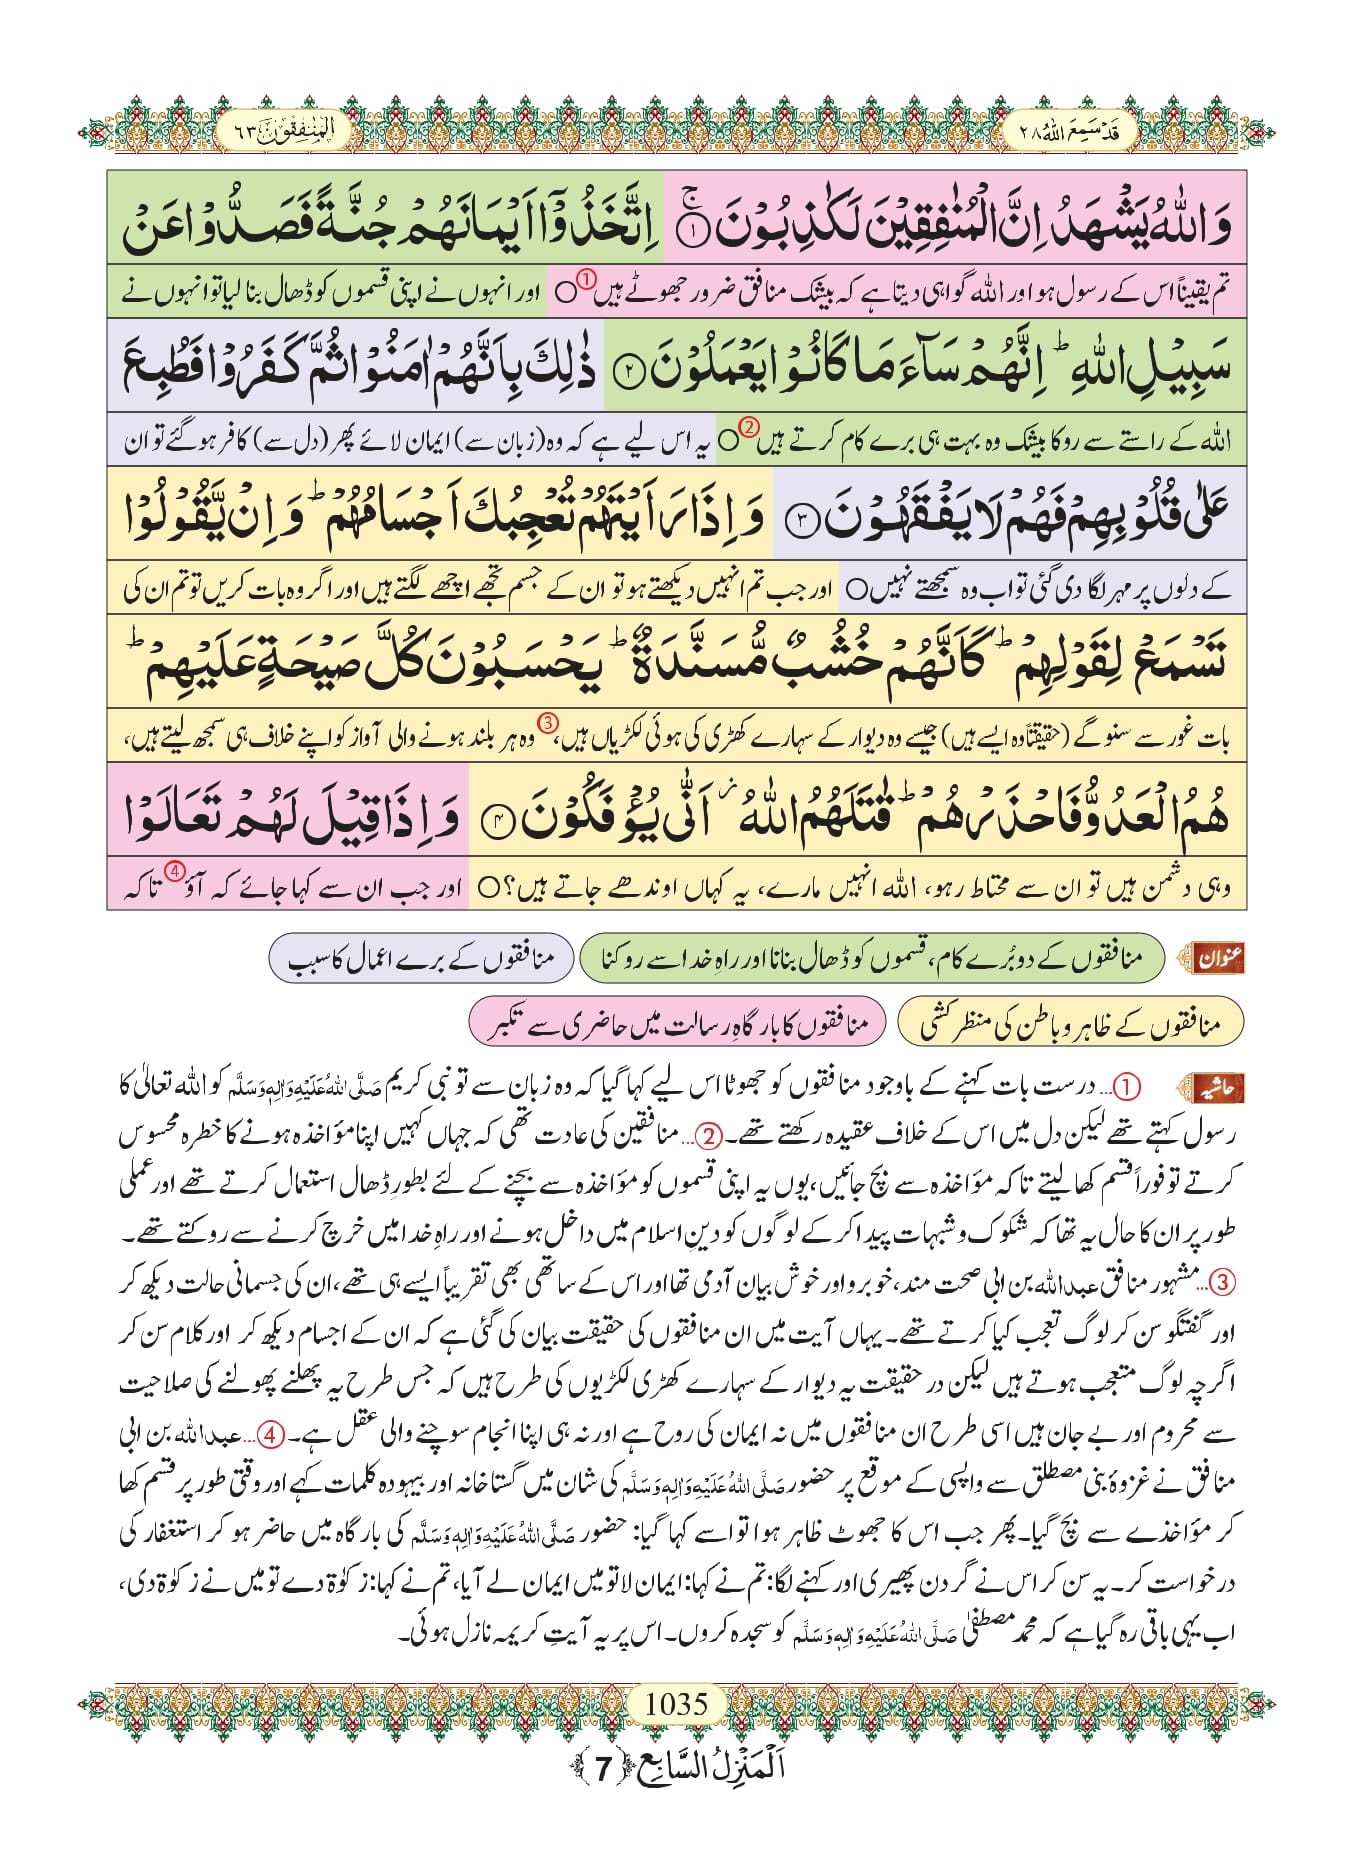 قَدْ سَمِعَ اللهُ ۲۸
الْمُنٰفِقُوْنَ ۶۳
وَاللّٰهُ يَشْهَدُ اِنَّ الْمُنٰفِقِيْنَ لَكٰذِبُوْنَ ۚ﴿۱﴾ اِتَّخَذُوْۤا اَيْمَانَهُمْ جُنَّةً فَصَدُّوْا عَنْ
تم یقیناً اس کے رسول ہو اور اللہ گواہی دیتا ہے کہ بیشک منافق ضرور جھوٹے ہیں① ○ اور انہوں نے اپنی قسموں کو ڈھال بنا لیا تو انہوں نے
سَبِيْلِ اللّٰهِ ؕ اِنَّهُمْ سَآءَ مَا كَانُوْا يَعْمَلُوْنَ ﴿۲﴾ ذٰلِكَ بِاَنَّهُمْ اٰمَنُوْا ثُمَّ كَفَرُوْا فَطُبِعَ
اللہ کے راستے سے روکا بیشک وہ بہت ہی برے کام کرتے ہیں② ○ یہ اس لیے ہے کہ وہ (زبان سے) ایمان لائے پھر (دل سے) کافر ہو گئے تو ان
عَلٰى قُلُوْبِهِمْ فَهُمْ لَا يَفْقَهُوْنَ ﴿۳﴾ وَ اِذَا رَاَيْتَهُمْ تُعْجِبُكَ اَجْسَامُهُمْ ؕ وَ اِنْ يَّقُوْلُوْا
کے دلوں پر مہر لگا دی گئی تو اب وہ سمجھتے نہیں ○ اور جب تم انہیں دیکھتے ہو تو ان کے جسم تجھے اچھے لگتے ہیں اور اگر وہ بات کریں تو تم ان کی
تَسْمَعْ لِقَوْلِهِمْ ؕ كَاَنَّهُمْ خُشُبٌ مُّسَنَّدَةٌ ؕ يَحْسَبُوْنَ كُلَّ صَيْحَةٍ عَلَيْهِمْ ؕ
بات غور سے سنو گے (حقیقتاً وہ ایسے ہیں) جیسے وہ دیوار کے سہارے کھڑی کی ہوئی لکڑیاں ہیں،③ وہ ہر بلند ہونے والی آواز کو اپنے خلاف ہی سمجھ لیتے ہیں،
هُمُ الْعَدُوُّ فَاحْذَرْهُمْ ؕ قٰتَلَهُمُ اللّٰهُ ؗ اَنّٰى يُؤْفَكُوْنَ ﴿۴﴾ وَ اِذَا قِيْلَ لَهُمْ تَعَالَوْا
وہی دشمن ہیں تو ان سے محتاط رہو، اللہ انہیں مارے، یہ کہاں اوندھے جاتے ہیں؟ ○ اور جب ان سے کہا جائے کہ آؤ④ تاکہ
عنوان منافقوں کے دو بُرے کام، قسموں کو ڈھال بنانا اور راہِ خدا سے روکنا منافقوں کے برے اعمال کا سبب
منافقوں کے ظاہر و باطن کی منظر کشی منافقوں کا بارگاہِ رسالت میں حاضری سے تکبر
حاشیہ ①... درست بات کہنے کے باوجود منافقوں کو جھوٹا اس لیے کہا گیا کہ وہ زبان سے تو نبی کریم صَلَّى اللهُ عَلَيْهِ وَاٰلِهٖ وَسَلَّم کو اللہ تعالیٰ کا
رسول کہتے تھے لیکن دل میں اس کے خلاف عقیدہ رکھتے تھے۔ ②... منافقین کی عادت تھی کہ جہاں کہیں اپنا مؤاخذہ ہونے کا خطرہ محسوس
کرتے تو فوراً قسم کھا لیتے تاکہ مؤاخذہ سے بچ جائیں، یوں یہ اپنی قسموں کو مؤاخذہ سے بچنے کے لئے بطورِ ڈھال استعمال کرتے تھے اور عملی
طور پر ان کا حال یہ تھا کہ شکوک و شبہات پیدا کر کے لوگوں کو دینِ اسلام میں داخل ہونے اور راہِ خدا میں خرچ کرنے سے روکتے تھے۔
③... مشہور منافق عبد اللہ بن ابی صحت مند، خوبرو اور خوش بیان آدمی تھا اور اس کے ساتھی بھی تقریباً ایسے ہی تھے، ان کی جسمانی حالت دیکھ کر
اور گفتگو سن کر لوگ تعجب کیا کرتے تھے۔ یہاں آیت میں ان منافقوں کی حقیقت بیان کی گئی ہے کہ ان کے اجسام دیکھ کر اور کلام سن کر
اگرچہ لوگ متعجب ہوتے ہیں لیکن در حقیقت یہ دیوار کے سہارے کھڑی لکڑیوں کی طرح ہیں کہ جس طرح یہ پھلنے پھولنے کی صلاحیت
سے محروم اور بے جان ہیں اسی طرح ان منافقوں میں نہ ایمان کی روح ہے اور نہ ہی اپنا انجام سوچنے والی عقل ہے۔ ④... عبد اللہ بن ابی
منافق نے غزوۂ بنی مصطلق سے واپسی کے موقع پر حضور صَلَّى اللهُ عَلَيْهِ وَاٰلِهٖ وَسَلَّم کی شان میں گستاخانہ اور بیہودہ کلمات کہے اور وقتی طور پر قسم کھا
کر مؤاخذے سے بچ گیا۔ پھر جب اس کا جھوٹ ظاہر ہوا تو اسے کہا گیا: حضور صَلَّى اللهُ عَلَيْهِ وَاٰلِهٖ وَسَلَّم کی بارگاہ میں حاضر ہو کر استغفار کی
درخواست کر۔ یہ سن کر اس نے گردن پھیری اور کہنے لگا: تم نے کہا: ایمان لا تو میں ایمان لے آیا، تم نے کہا: زکوٰۃ دے تو میں نے زکوٰۃ دی،
اب یہی باقی رہ گیا ہے کہ محمد مصطفیٰ صَلَّى اللهُ عَلَيْهِ وَاٰلِهٖ وَسَلَّم کو سجدہ کروں۔ اس پر یہ آیتِ کریمہ نازل ہوئی۔
1035
اَلْمَنْزِلُ السَّابِع ﴿7﴾